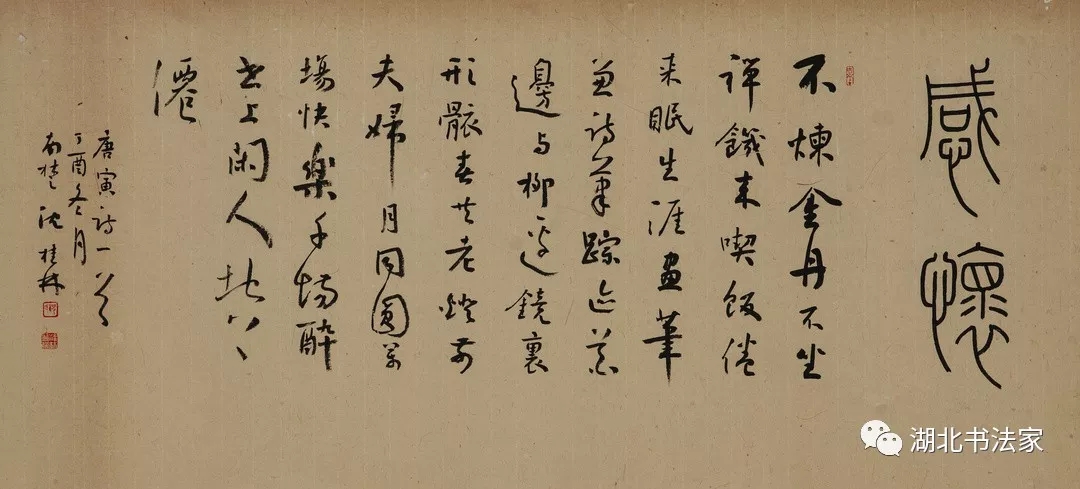 感懷
不煉金丹不坐
禪饑來喫飯倦
来眠生涯畫筆
兼詩筆踪迹花
邊与柳邊鏡裏
形骸春共老鐙前
夫婦月同圓萬
場快樂千場醉
世上閑人地上
僊
唐寅詩一首
丁酉冬月
沈桂林
湖北书法家